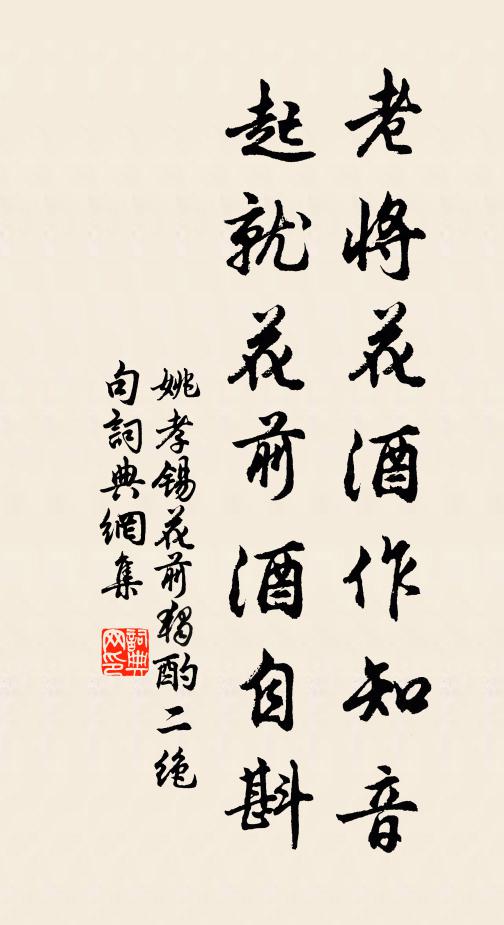 老將花酒作知音
起就花前酒自斟
姚孝錫花前獨酌二絕
句詞典網集
詞典
网印